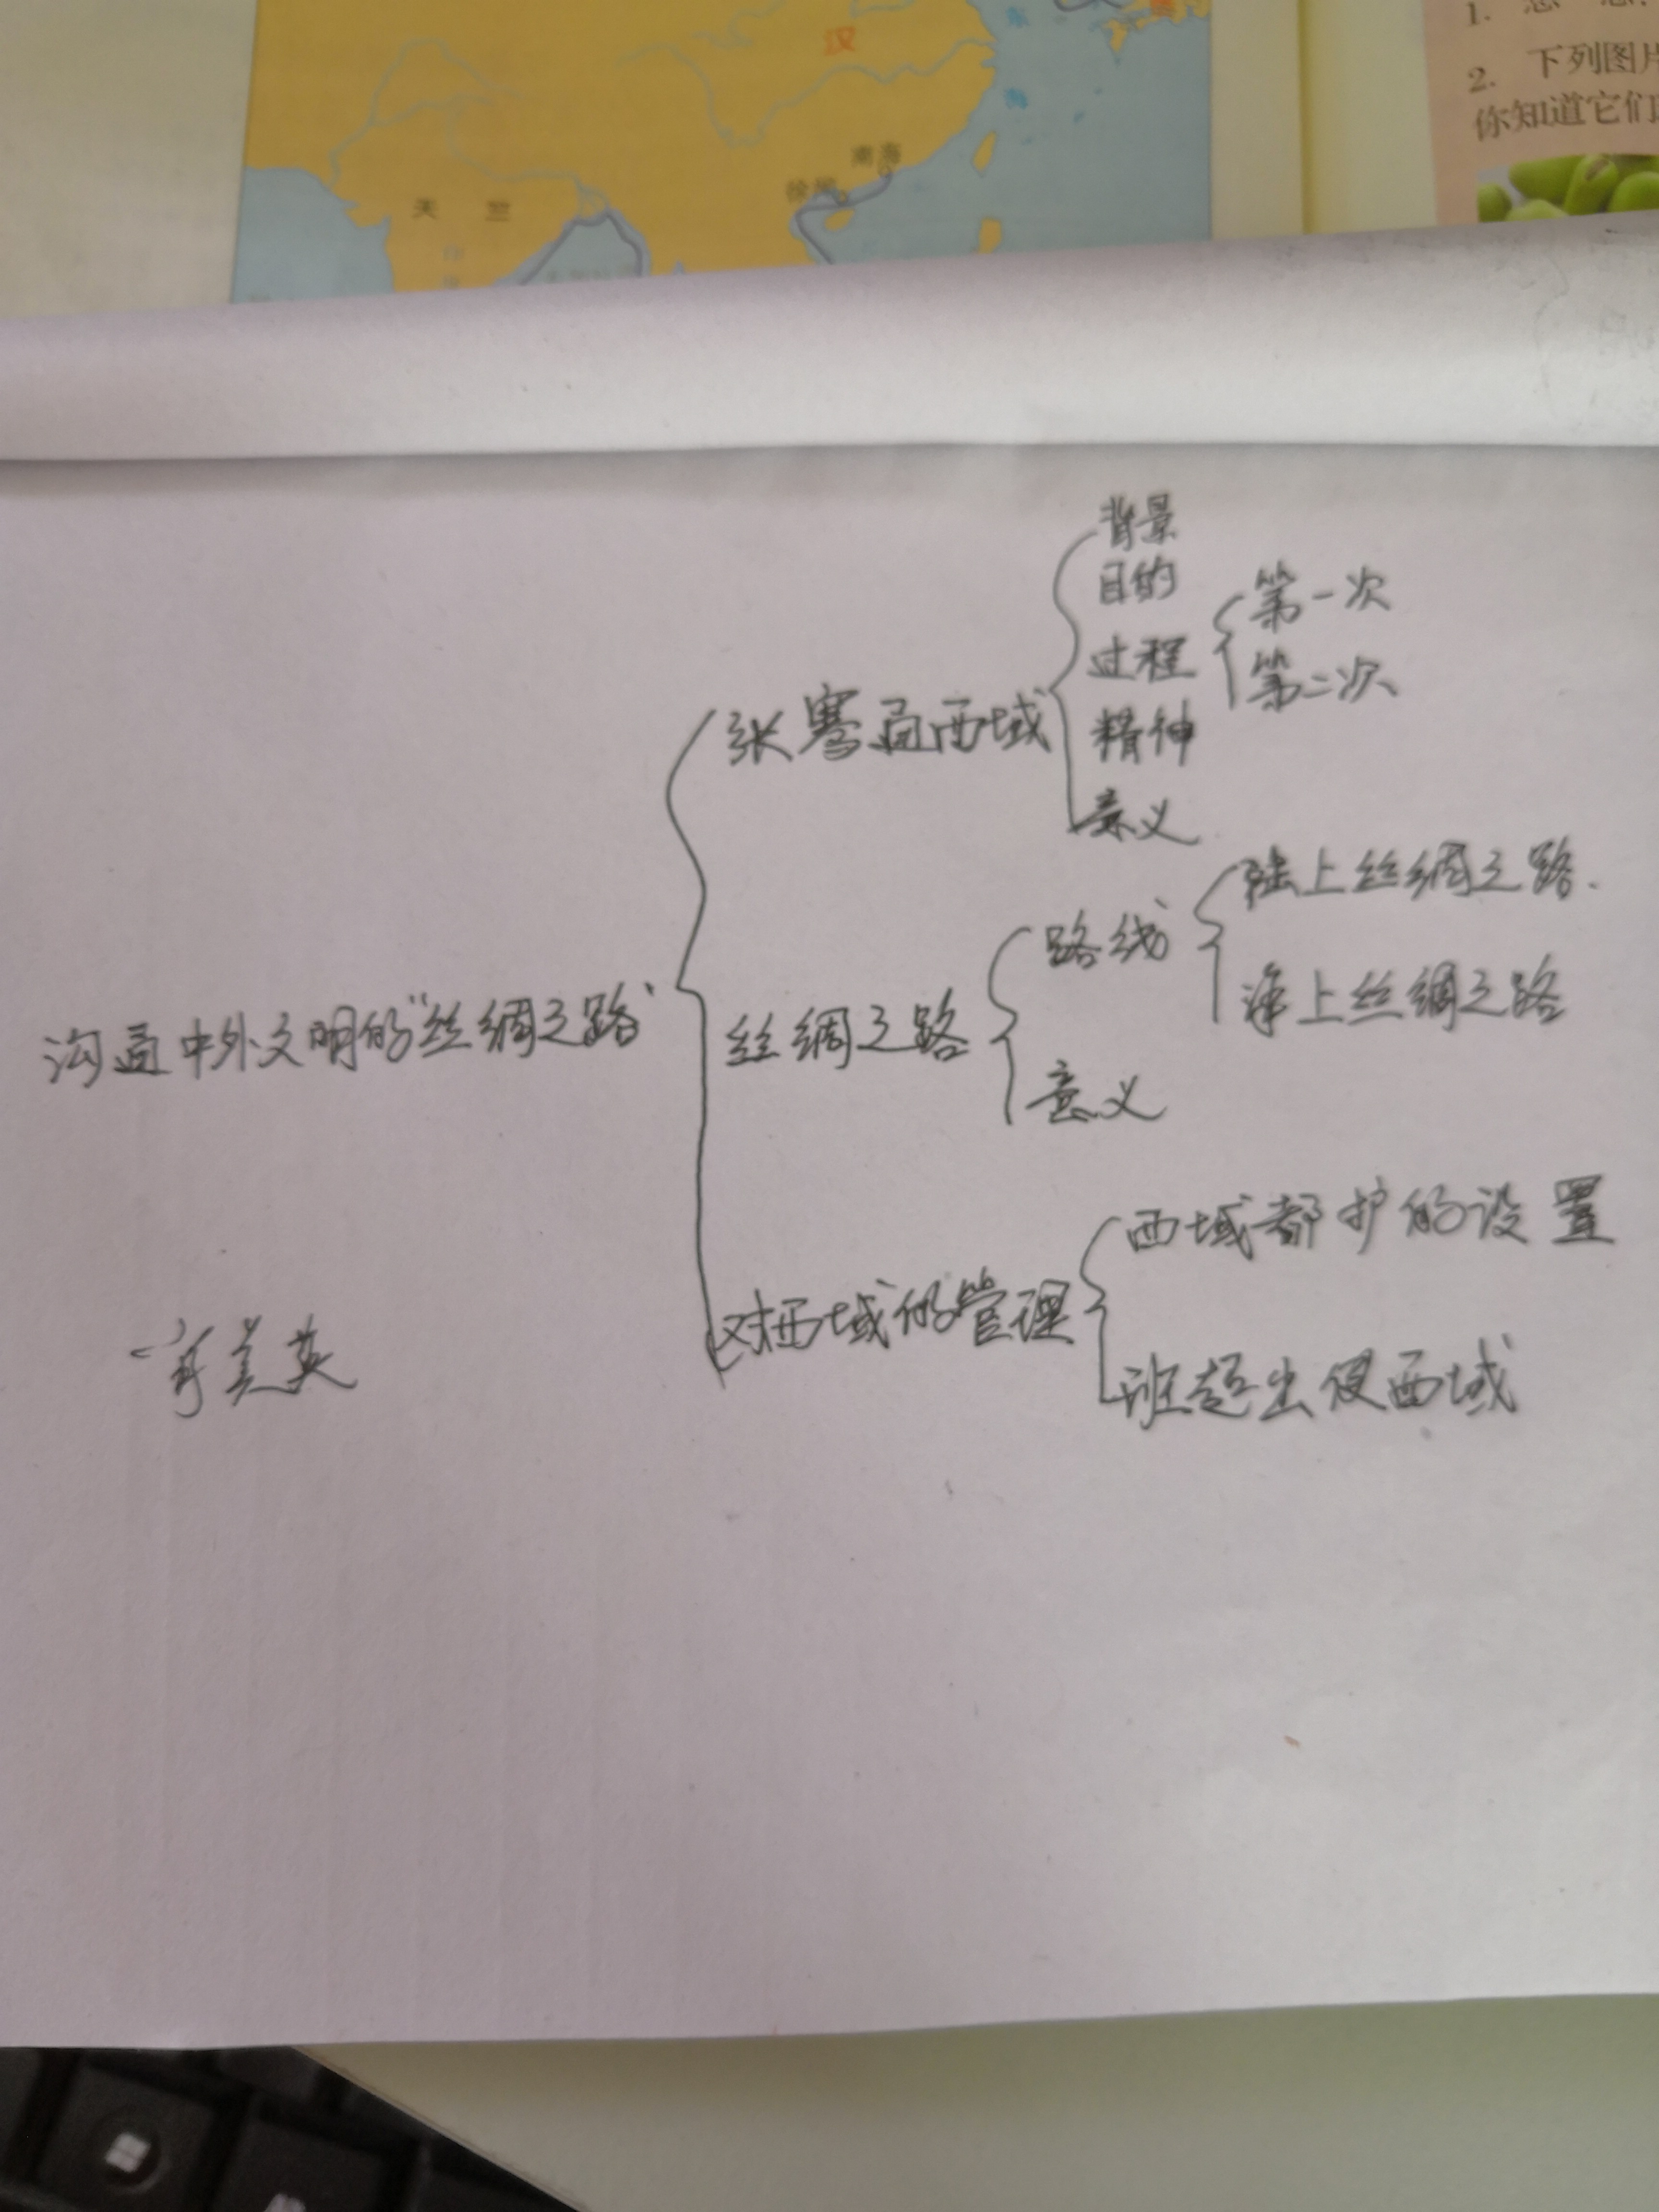 汉
东
海
南海
徐闻
天竺
印
1.
2. 下列图片
你知道它们
沟通中外文明的"丝绸之路"
张骞通西域
背景
目的
过程
第一次
第二次
精神
意义
丝绸之路
路线
陆上丝绸之路
海上丝绸之路
意义
对西域的管理
西域都护的设置
班超出使西域
美英